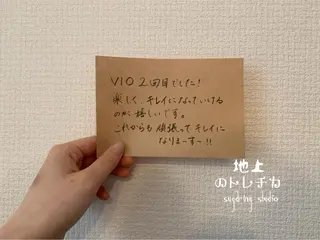 VIO 2回目でした!
楽しく、キレイになっていける
のが嬉しいです。
これからも頑張ってキレイに
なりまーすー!!
地上
のトレチカ
sugaring studio